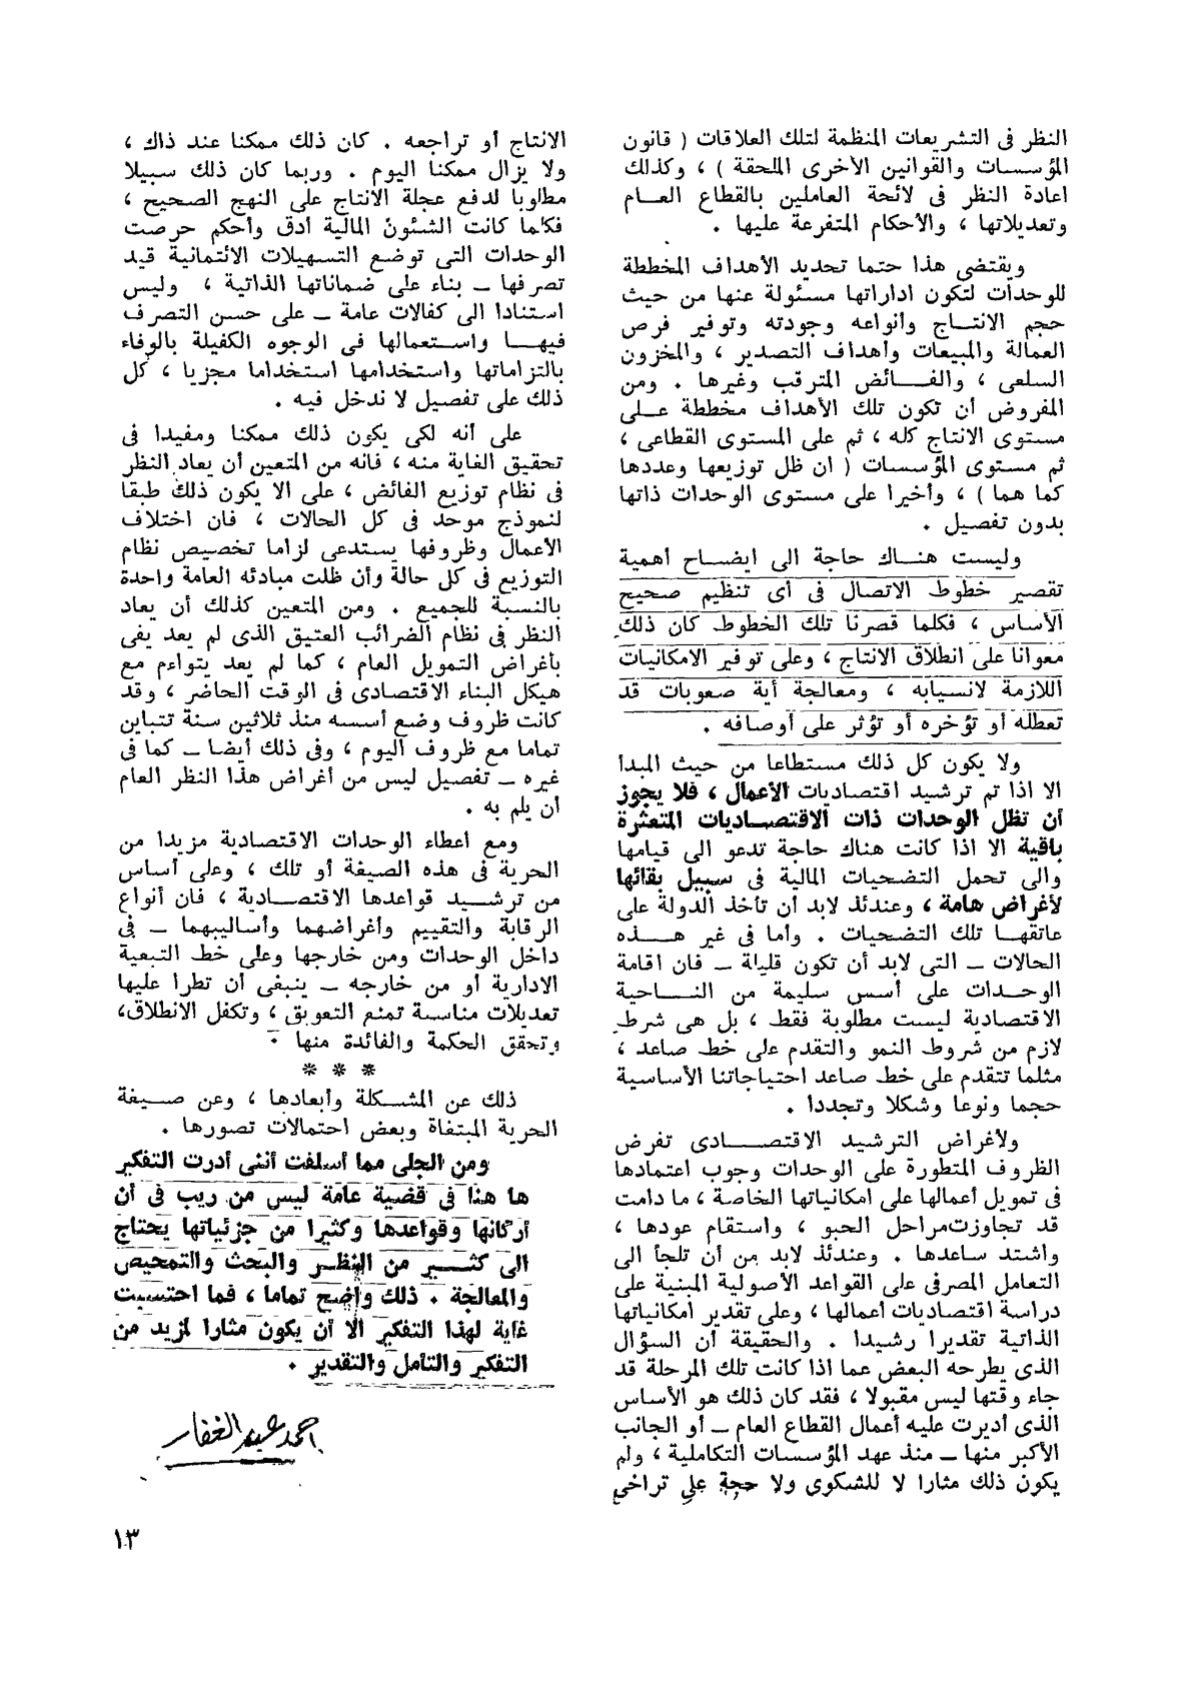 النظر فى التشريعات المنظمة لتلك العلاقات ( قانون
المؤسسات والقوانين الأخرى الملحقة ) ، وكذلك
اعادة النظر فى لائحة العاملين بالقطاع العـــام
وتعديلاتها ، والأحكام المتفرعة عليها .
ويقتضى هذا حتما تحديد الأهداف المخططة
للوحدات لتكون اداراتها مسئولة عنها من حيث
حجم الانتــاج وأنواعه وجودته وتوفير فرص
العمالة والمبيعات وأهداف التصدير ، والمخزون
السلعى ، والفـــائض المترقب وغيرها . ومن
المفروض أن تكون تلك الأهداف مخططة عــلى
مستوى الانتاج كله ، ثم على المستوى القطاعى ،
ثم مستوى المؤسسات ( ان ظل توزيعها وعددها
كما هما ) ، وأخيرا على مستوى الوحدات ذاتها
بدون تفصيل .
وليست هنــاك حاجة الى ايضــاح أهمية
تقصير خطوط الاتصال فى أى تنظيم صحيح
الأساس ، فكلما قصرنا تلك الخطوط كان ذلك
معوانا على انطلاق الانتاج ، وعلى توفير الامكانيات
اللازمة لانسيابه ، ومعالجة أية صعوبات قد
تعطله أو تؤخره أو تؤثر على أوصافه .
ولا يكون كل ذلك مستطاعا من حيث المبدا
الا اذا تم ترشيد اقتصاديات الأعمال ، فلا يجوز
أن تظل الوحدات ذات الاقتصــاديات المتعثرة
باقية الا اذا كانت هناك حاجة تدعو الى قيامها
والى تحمل التضحيات المالية فى سبيل بقائها
لأغراض هامة ، وعندئذ لابد أن تأخذ الدولة على
عاتقهــا تلك التضحيات . وأما فى غير هـــذه
الحالات ـ التى لابد أن تكون قليلة ـ فان اقامة
الوحــدات على أسس سليمة من النــاحية
الاقتصادية ليست مطلوبة فقط ، بل هى شرط
لازم من شروط النمو والتقدم على خط صاعد ،
مثلما تتقدم على خط صاعد احتياجاتنا الأساسية
حجما ونوعا وشكلا وتجددا .
ولأغراض الترشيد الاقتصــــادى تفرض
الظروف المتطورة على الوحدات وجوب اعتمادها
فى تمويل أعمالها على امكانياتها الخاصة ، ما دامت
قد تجاوزت مراحل الحبو ، واستقام عودها ،
واشتد ساعدها . وعندئذ لابد من أن تلجأ الى
التعامل المصرفى على القواعد الأصولية المبنية على
دراسة اقتصاديات أعمالها ، وعلى تقدير امكانياتها
الذاتية تقديرا رشيدا . والحقيقة أن السؤال
الذى يطرحه البعض عما اذا كانت تلك المرحلة قد
جاء وقتها ليس مقبولا ، فقد كان ذلك هو الأساس
الذى أديرت عليه أعمال القطاع العام ـ أو الجانب
الأكبر منها ـ منذ عهد المؤسسات التكاملية ، ولم
يكون ذلك مثارا لا للشكوى ولا حجة على تراخى
الانتاج أو تراجعه . كان ذلك ممكنا عند ذاك ،
ولا يزال ممكنا اليوم . وربما كان ذلك سبيلا
مطلوبا لدفع عجلة الانتاج على النهج الصحيح ،
فكلما كانت الشئون المالية أدق وأحكم حرصت
الوحدات التى توضع التسهيلات الائتمانية قيد
تصرفها ـ بناء على ضماناتها الذاتية ، وليس
استنادا الى كفالات عامة ـ على حسن التصرف
فيهــا واستعمالها فى الوجوه الكفيلة بالوفاء
بالتزاماتها واستخدامها استخداما مجزيا ، كل
ذلك على تفصيل لا ندخل فيه .
على أنه لكى يكون ذلك ممكنا ومفيدا فى
تحقيق الغاية منه ، فانه من المتعين أن يعاد النظر
فى نظام توزيع الفائض ، على الا يكون ذلك طبقا
لنموذج موحد فى كل الحالات ، فان اختلاف
الأعمال وظروفها يستدعى لزاما تخصيص نظام
التوزيع فى كل حالة وأن ظلت مبادئه العامة واحدة
بالنسبة للجميع . ومن المتعين كذلك أن يعاد
النظر فى نظام الضرائب العتيق الذى لم يعد يفى
بأغراض التمويل العام ، كما لم يعد يتواءم مع
هيكل البناء الاقتصادى فى الوقت الحاضر ، وقد
كانت ظروف وضع أسسه منذ ثلاثين سنة تتباين
تماما مع ظروف اليوم ، وفى ذلك أيضا ـ كما فى
غيره ـ تفصيل ليس من أغراض هذا النظر العام
أن يلم به .
ومع اعطاء الوحدات الاقتصادية مزيدا من
الحرية فى هذه الصيغة أو تلك ، وعلى أساس
من ترشــيد قواعدها الاقتصــادية ، فان أنواع
الرقابة والتقييم وأغراضهما وأساليبهما ـ فى
داخل الوحدات ومن خارجها وعلى خط التبعية
الادارية أو من خارجه ـ ينبغى أن تطرا عليها
تعديلات مناسبة تمنع التعويق ، وتكفل الانطلاق،
وتحقق الحكمة والفائدة منها .
* * *
ذلك عن المشــكلة وأبعادها ، وعن صــيغة
الحرية المبتغاة وبعض احتمالات تصورها .
ومن الجلى مما أسلفت أننى أدرت التفكير
ها هنا فى قضية عامة ليس من ريب فى أن
أركانها وقواعدها وكثيرا من جزئياتها يحتاج
الى كثــــير من النظــر والبحث والتمحيص
والمعالجة . ذلك واضح تماما ، فما احتسبت
غاية لهذا التفكير الا أن يكون مثارا لمزيد من
التفكير والتأمل والتقدير .
احمد عبد الغفار
١٣